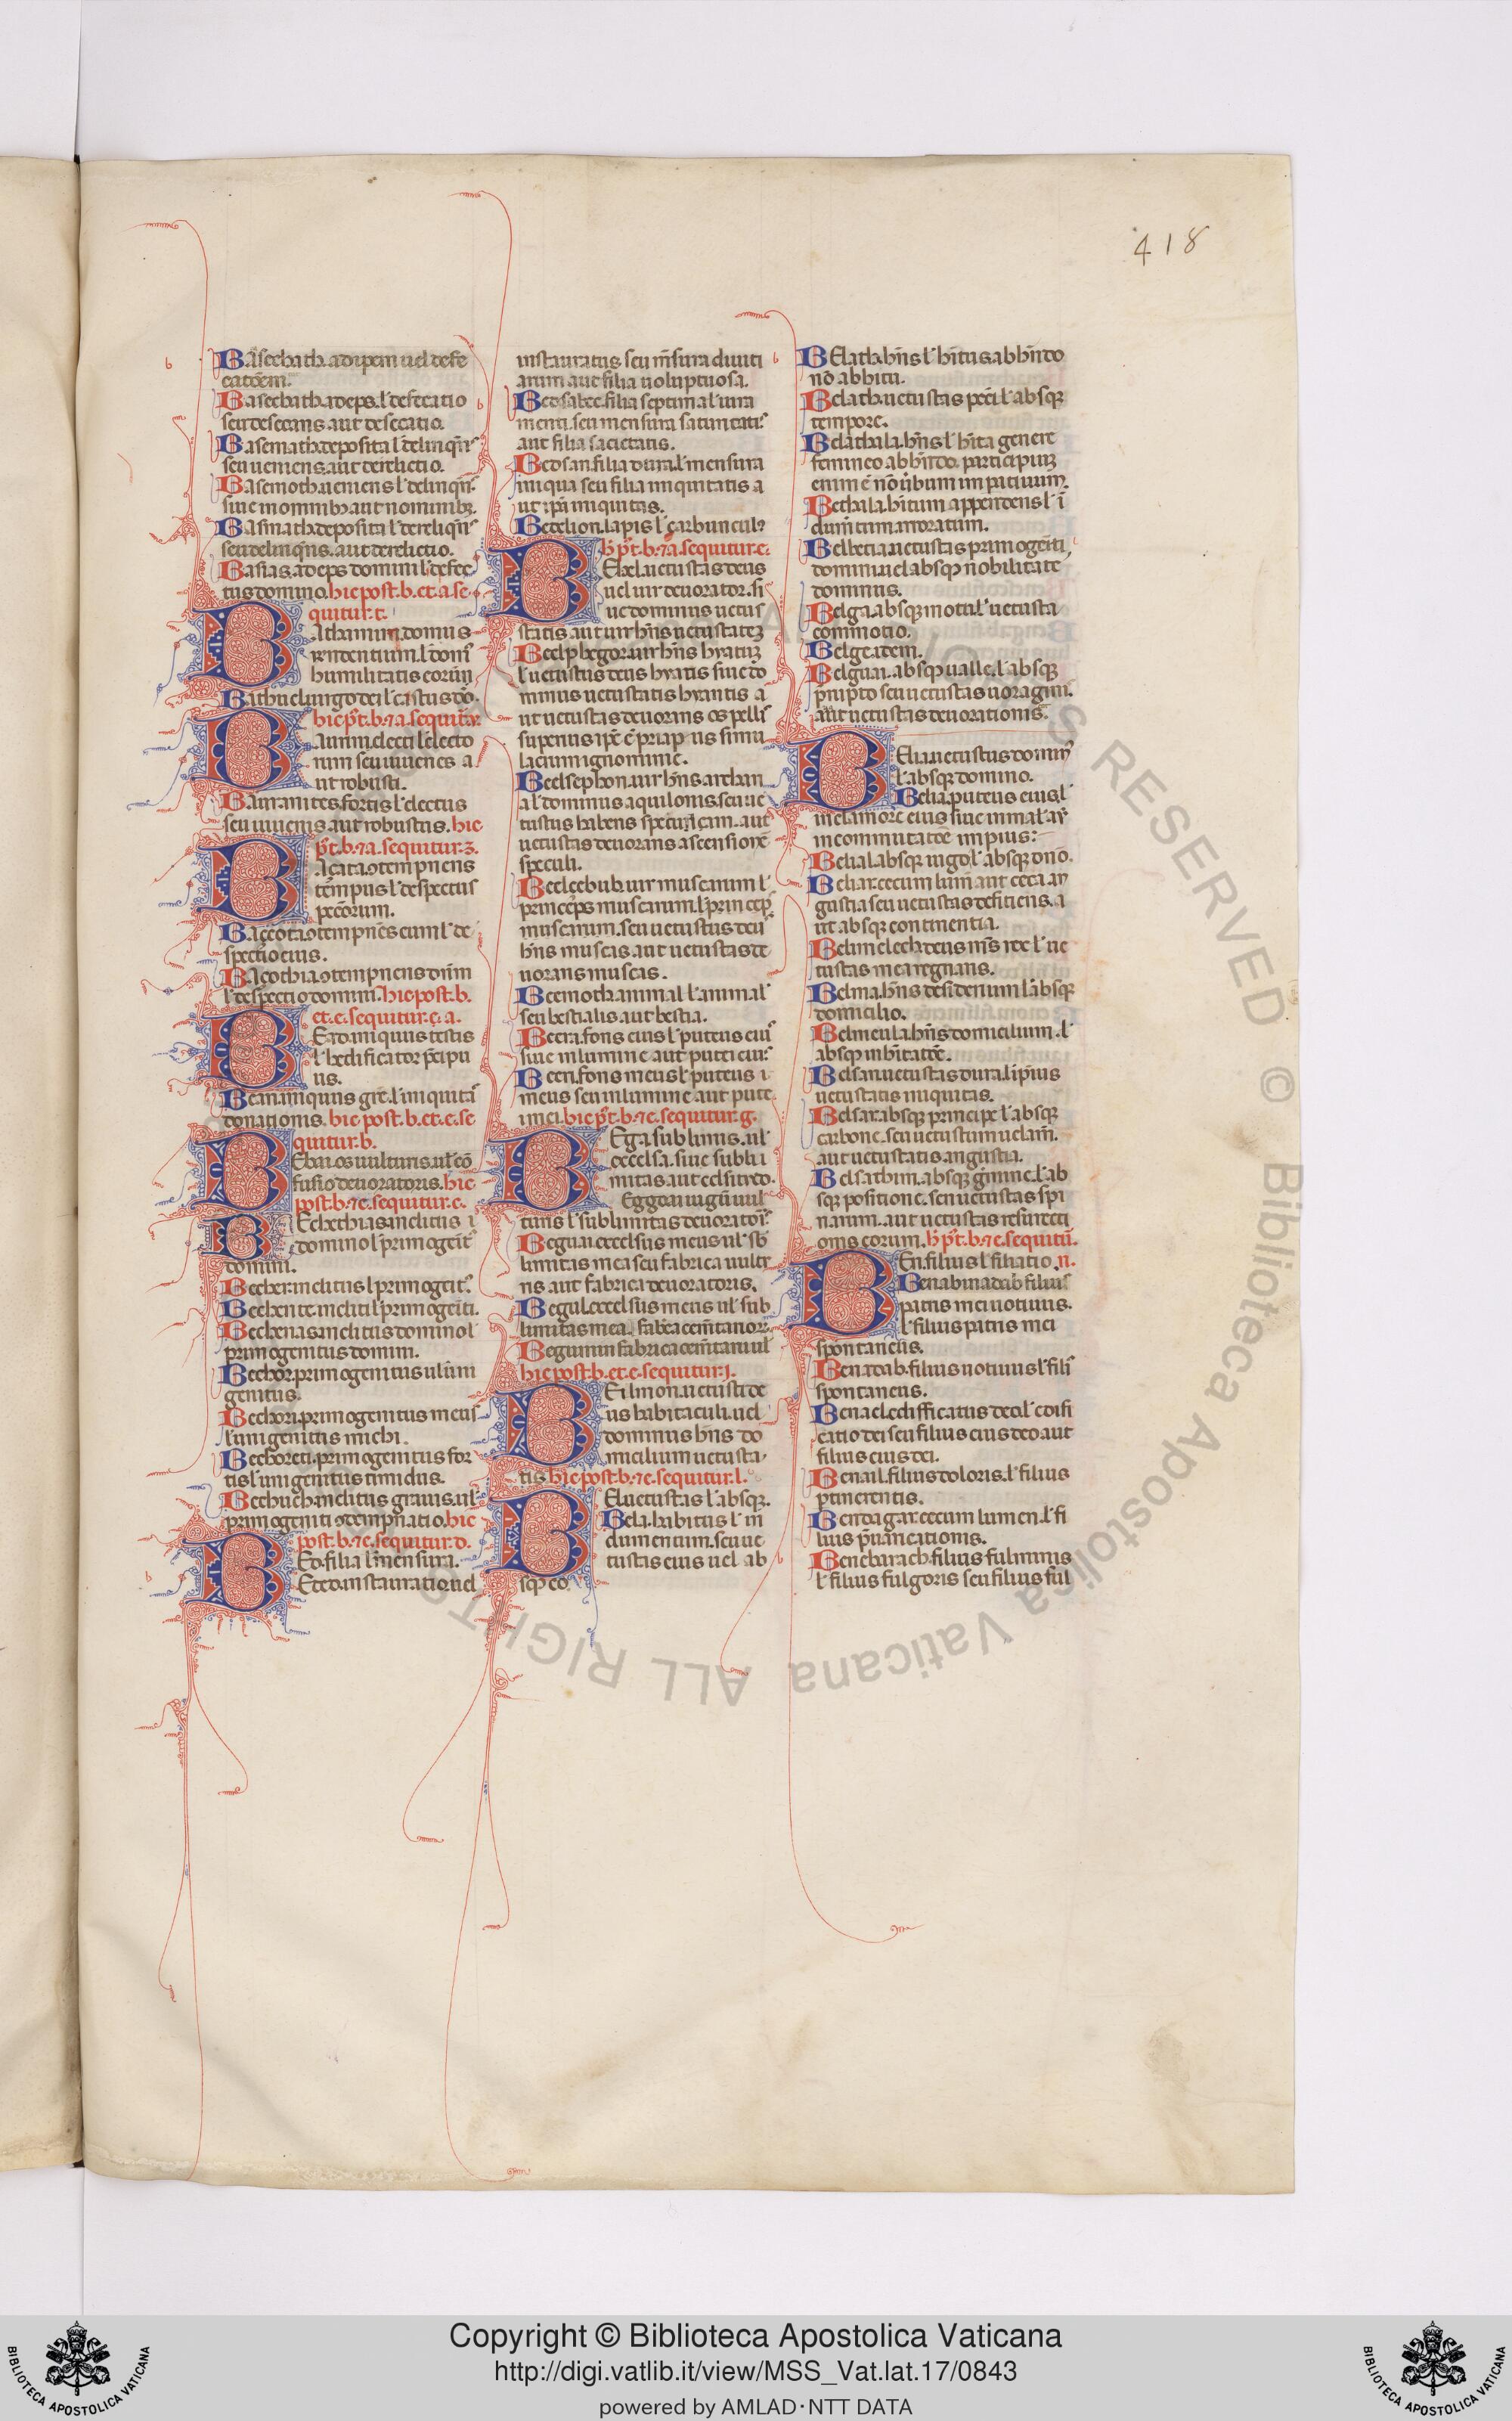 418
Basecbath. adipem uel defe
catōem.
Basecbath. adeps. l' defecatio
seu desecans. aut desecatio.
Basemath. deposita l' delinq̄ns
seu ueniens. aut derelictio.
Basemoth. ueniens l' delinq̄ns
siue in ominibꝫ aut nominibꝫ.
Basmath. deposita l' derelinq̄ns
seu delinq̄ns. aut derelictio.
Basias. adeps domini l' defec
tus domino. hic post. b. et. a. se
quitur. t.
Athamim. domus
irridentium. l' dom'
humilitatis eorum
Bathuel. uirgo dei l' cistus dō.
hic p't. b. ⁊ a. sequitur.
Aurim. electi l' electo
rum seu iuuenes a
ut robusti.
Bauramites. fortis l' electus
seu iuuenis. aut robustus. hic
p't. b. ⁊ a. sequitur. z.
Açata. ꝯtempnens
tempus l' despectus
peccorum.
Baccota. ꝯtempnēs eum l' de
spectio eius.
Baçothia. ꝯtempnens dn̄m
l' despectio domini. hic post. b.
et. e. sequitur. c. a.
Edam. iniquus testis
l' hedificator p̄cipu
us.
Bean. iniquus gr̄e. l' iniquitas
donationis. hic post. b. et. e. se
quitur. b.
Ebai. os uulturis. ul' cō
fusio deuoratoris. hic
post. b. ⁊ e. sequitur. c.
Echechias. inclitus i
domino l' primogeit'
domini.
Becher. inclitus l' primogeit'.
Becherite. incliti l' primogeiti.
Becherias. inclitus domino l'
primogenitus domini.
Bechor. primogenitus ul' uni
genitus.
Bechori. primogenitus meus
l' unigenitus michi.
Bechoreti. primogenitus for
tis l' unigenitus timidus.
Bechueh. inclitus grauis. ul'
primogeniti ꝯtempnatio. hic
post. b. ⁊ e. sequitur. d.
Ed. filia l' mensura.
Ected. instauratio. uel
instauratus. seu m̄sura diuiti
arum aut filia uoluptuosa.
Bedsabee. filia septima l' iura
menti. seu mensura saturitatis
aut filia sacietatis.
Bedsan. filia dura. l' mensura
iniqua seu filia iniquitatis a
ut ip̄a iniquitas.
Bedelion. lapis l' carbuncul'
h' p't. b. ⁊ a. sequitur. e.
Eel. uetustas deus
uel uir deuorator. si
ue dominus uetus
statis aut uir hn̄s uetustatez
Beelphegor. uir hn̄s hyatuz
l' uetustus deus hyatis siue do
minus uetustatis hyantis a
ut uetustas deuorans os pelli
superius ip̄e ē priapus simu
lacrum ignominie.
Beelsephon. uir hn̄s archan
a l' dominus aquilonis. seu ue
tustus habens speculam. aut
uetustas deuorans ascensiōne
speculi.
Beelçebub. uir muscarum l'
princeps muscarum. l' princeps
muscarum. seu uetustus deus
hn̄s muscas. aut uetustas de
uorans muscas.
Beemoth. animal l' animal'
seu bestialis aut bestia.
Beera. fons eius l' puteus eius
siue in lumine aut putei eius
Beeri. fons meus l' puteus i
meus seu in lumine aut pute
i mei. hic p't. b. ⁊ e. sequitur. g.
Ega. sublimis. ul'
excelsa. siue subli
mitas. aut celsitudo.
Eggoau. iugū uul
turis l' sublimitas deuoratoris.
Begua. excelsus meus ul' sb'
limitas mea seu fabrica uultu
ris aut fabrica deuoratoris.
Begul. excelsus meus ul' sub
limitas mea. fabrica
Begunin. fabrica
hic post. b. et. e. sequitur. i.
Eilmon. uetusti de
us habitaculi. uel
dominus hn̄s do
micilium uetusta
tis. hic post. b. ⁊ e. sequitur. l.
El. uetustas l' absqꝫ.
Bela. habitus l' in
dumentum. seu ue
tustas eius uel ab
sqꝫ eo.
Belath. hn̄s l' hītus ab hn̄do
nō ab hitu.
Belath. uetustas p̄cti l' absqꝫ
tempore.
Belathala. hn̄s l' hita genere
femineo ab hn̄do. participiuꝫ
enim ē nō uerbum imparitiuum.
Bethala. hitum appendens l' i
dum̄tum irroratum.
Belberia. uetustas primogeiti
domini. uel absqꝫ nobilitate
dominus.
Belga. absqꝫ motu l' uetusta
commotio.
Belge. idem.
Belguai. absqꝫ ualle. l' absqꝫ
p̄rupto seu uetustas uoraginis.
aut uetustas deuorationis.
Elia. uetustus dominus
l' absqꝫ domino.
Belia. puteus eius. l'
in clamore eius siue in mal' ar̄
in commutatōe impius:
Belial. absqꝫ iugo l' absqꝫ dn̄o.
Beliar. cecum lumē aut ceca an
gustia seu uetustas deficiens. a
ut absqꝫ continentia.
Belimelech. deus m̄s rex l' ue
tustas mea regnans.
Belma. hn̄s desiderium l' absqꝫ
domicilio.
Belmeula. hn̄s domicilium. l'
absqꝫ inhitatōe.
Belsan. uetustas dura. l' ip̄ius
uetustatis iniquitas.
Belsar. absqꝫ principe l' absqꝫ
carbone. seu uetustum uelam̄.
aut uetustatis angustia.
Belsathim. absqꝫ gm̄ine. l' ab
sqꝫ positione. seu uetustas spi
narum. aut uetustas resurecti
onis eorum. h' p't. b. ⁊ e. sequitur.
En. filius l' filiatio. n.
Benabinadab. filius
patris mei uotiuus.
l' filius patris mei
spontaneus.
Benadab. filius uotiuus l' fili'
spontaneus.
Benael. edifficatus deo. l' edifi
catio dei seu filius eius deo. aut
filius eius dei.
Benail. filius doloris. l' filius
p̱tinentis.
Bendagar. cecum lumen. l' fi
lius p̄uaricationis.
Benebarach. filius fulminis
l' filius fulgoris seu filius ful
Copyright © Biblioteca Apostolica Vaticana
http://digi.vatlib.it/view/MSS_Vat.lat.17/0843
powered by AMLAD·NTT DATA
BIBLIOTECA APOSTOLICA VATICANA
BIBLIOTECA APOSTOLICA VATICANA